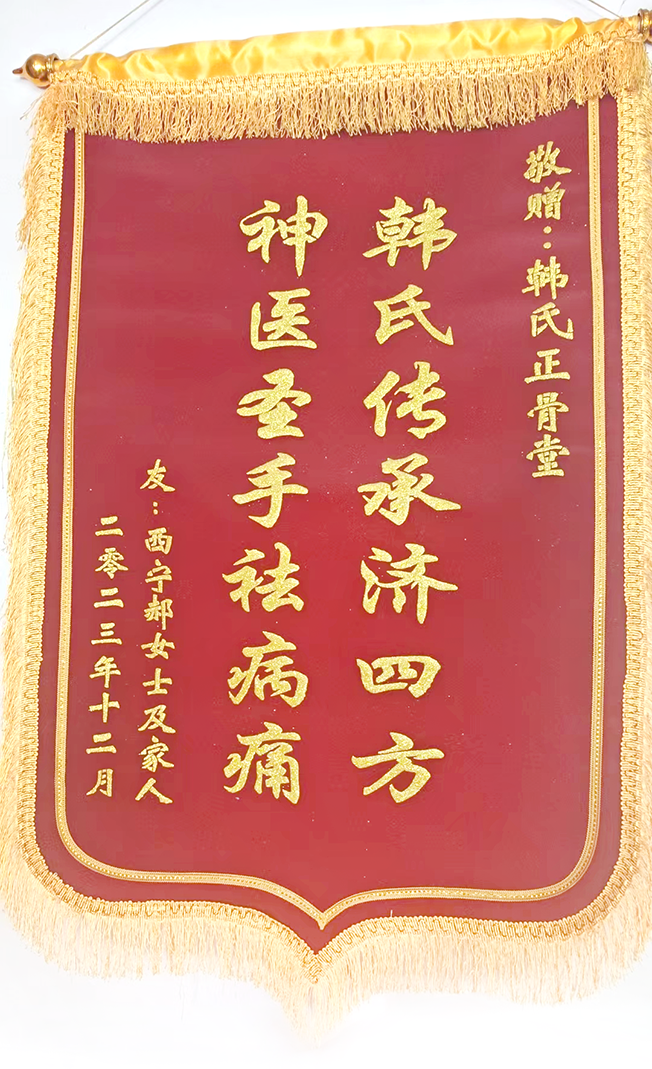 敬赠：韩氏正骨堂
韩氏传承济四方
神医圣手祛病痛
友：西宁郝女士及家人
二零二三年十二月